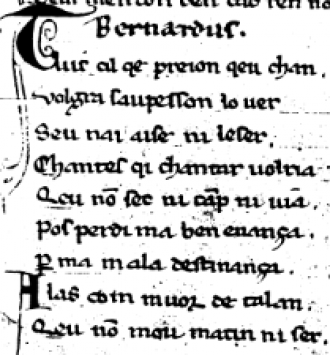 Bernardus.
Tuit cil qe preion qeu chan.
volgra saupesson lo uer
Seu nai aise ni leser.
Chantes qi chantar uolria
Qeu nō sec ni cap ni uiā
Pos perdi ma ben enança.
p ma mala destinança.
Alas com muor de talan.
Qeu nō mou matin ni ser.